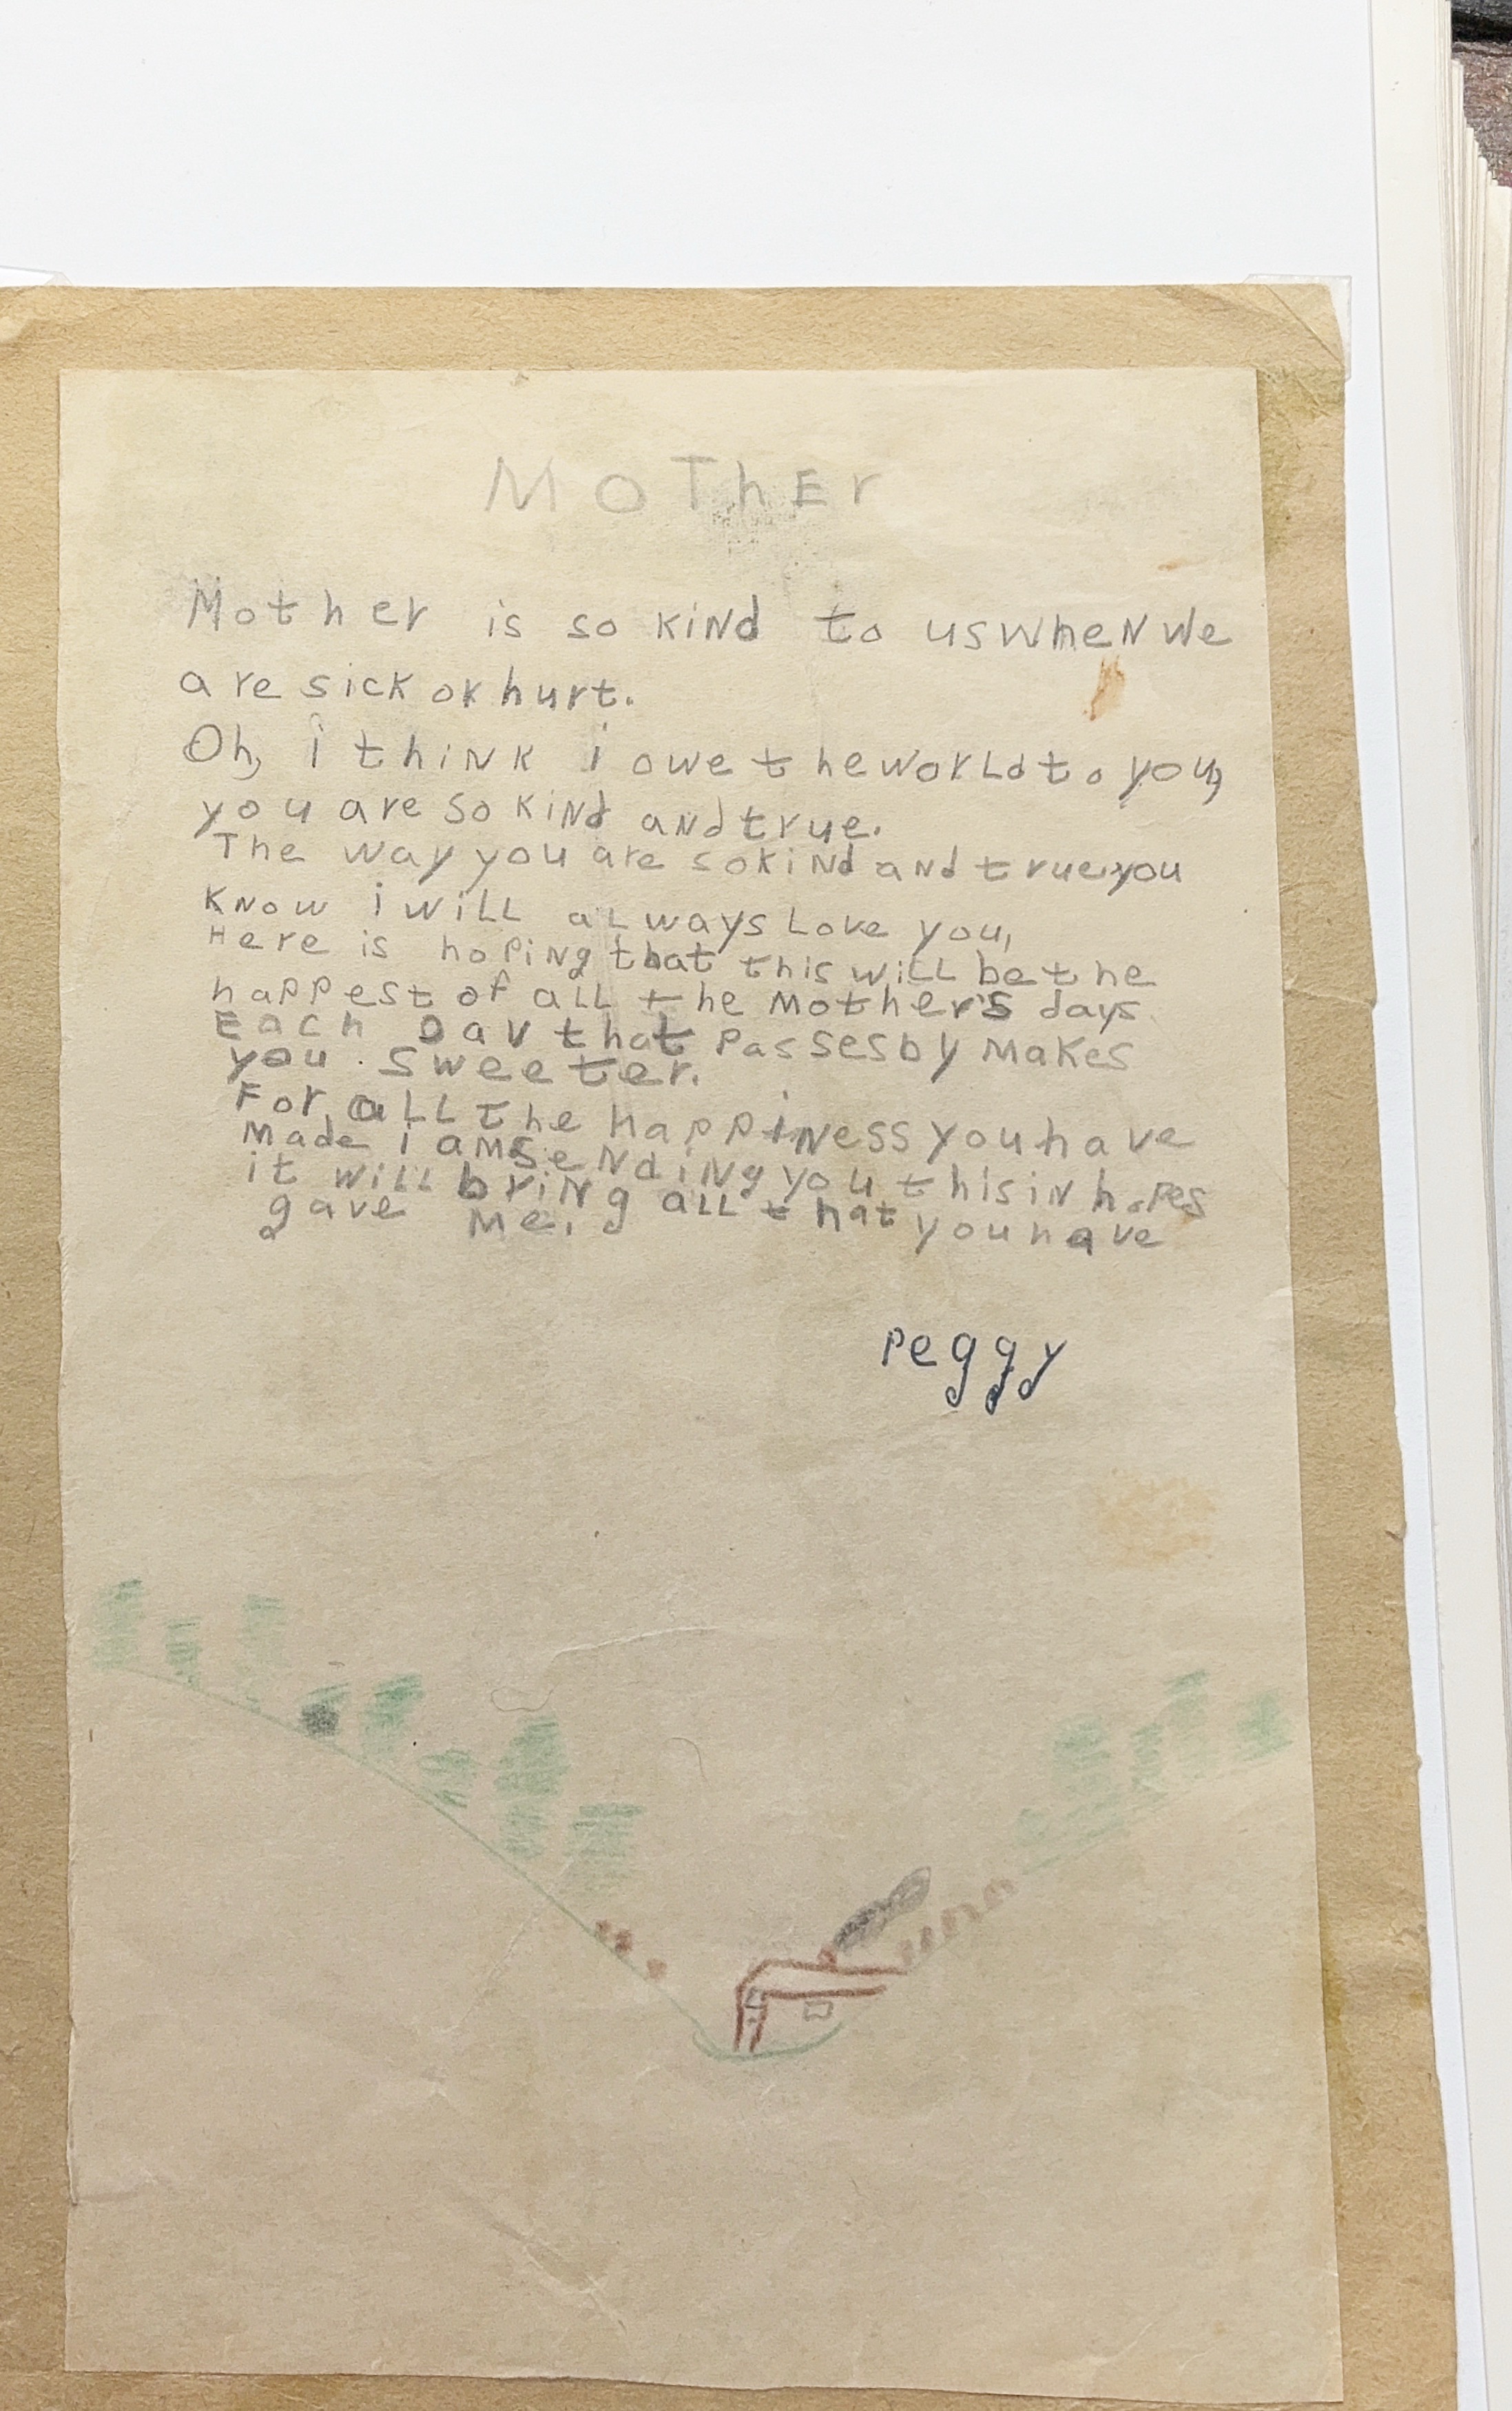 MoThEr
Mother is so kiNd to us wheN We
are sick or hurt.
Oh, i thiNk i owe the worLd to you,
you are so kiNd aNd true.
The way you are so kiNd aNd true you
kNow i wiLL aLways Love you,
Here is hopiNg that this wiLL be the
happest of aLL the Mother's days.
Each Day that passes by Makes
you sweeter.
For aLL the happiNess you have
Made i am seNdiNg you this iN hopes
it wiLL briNg aLL that you have
gave Me.
peggy